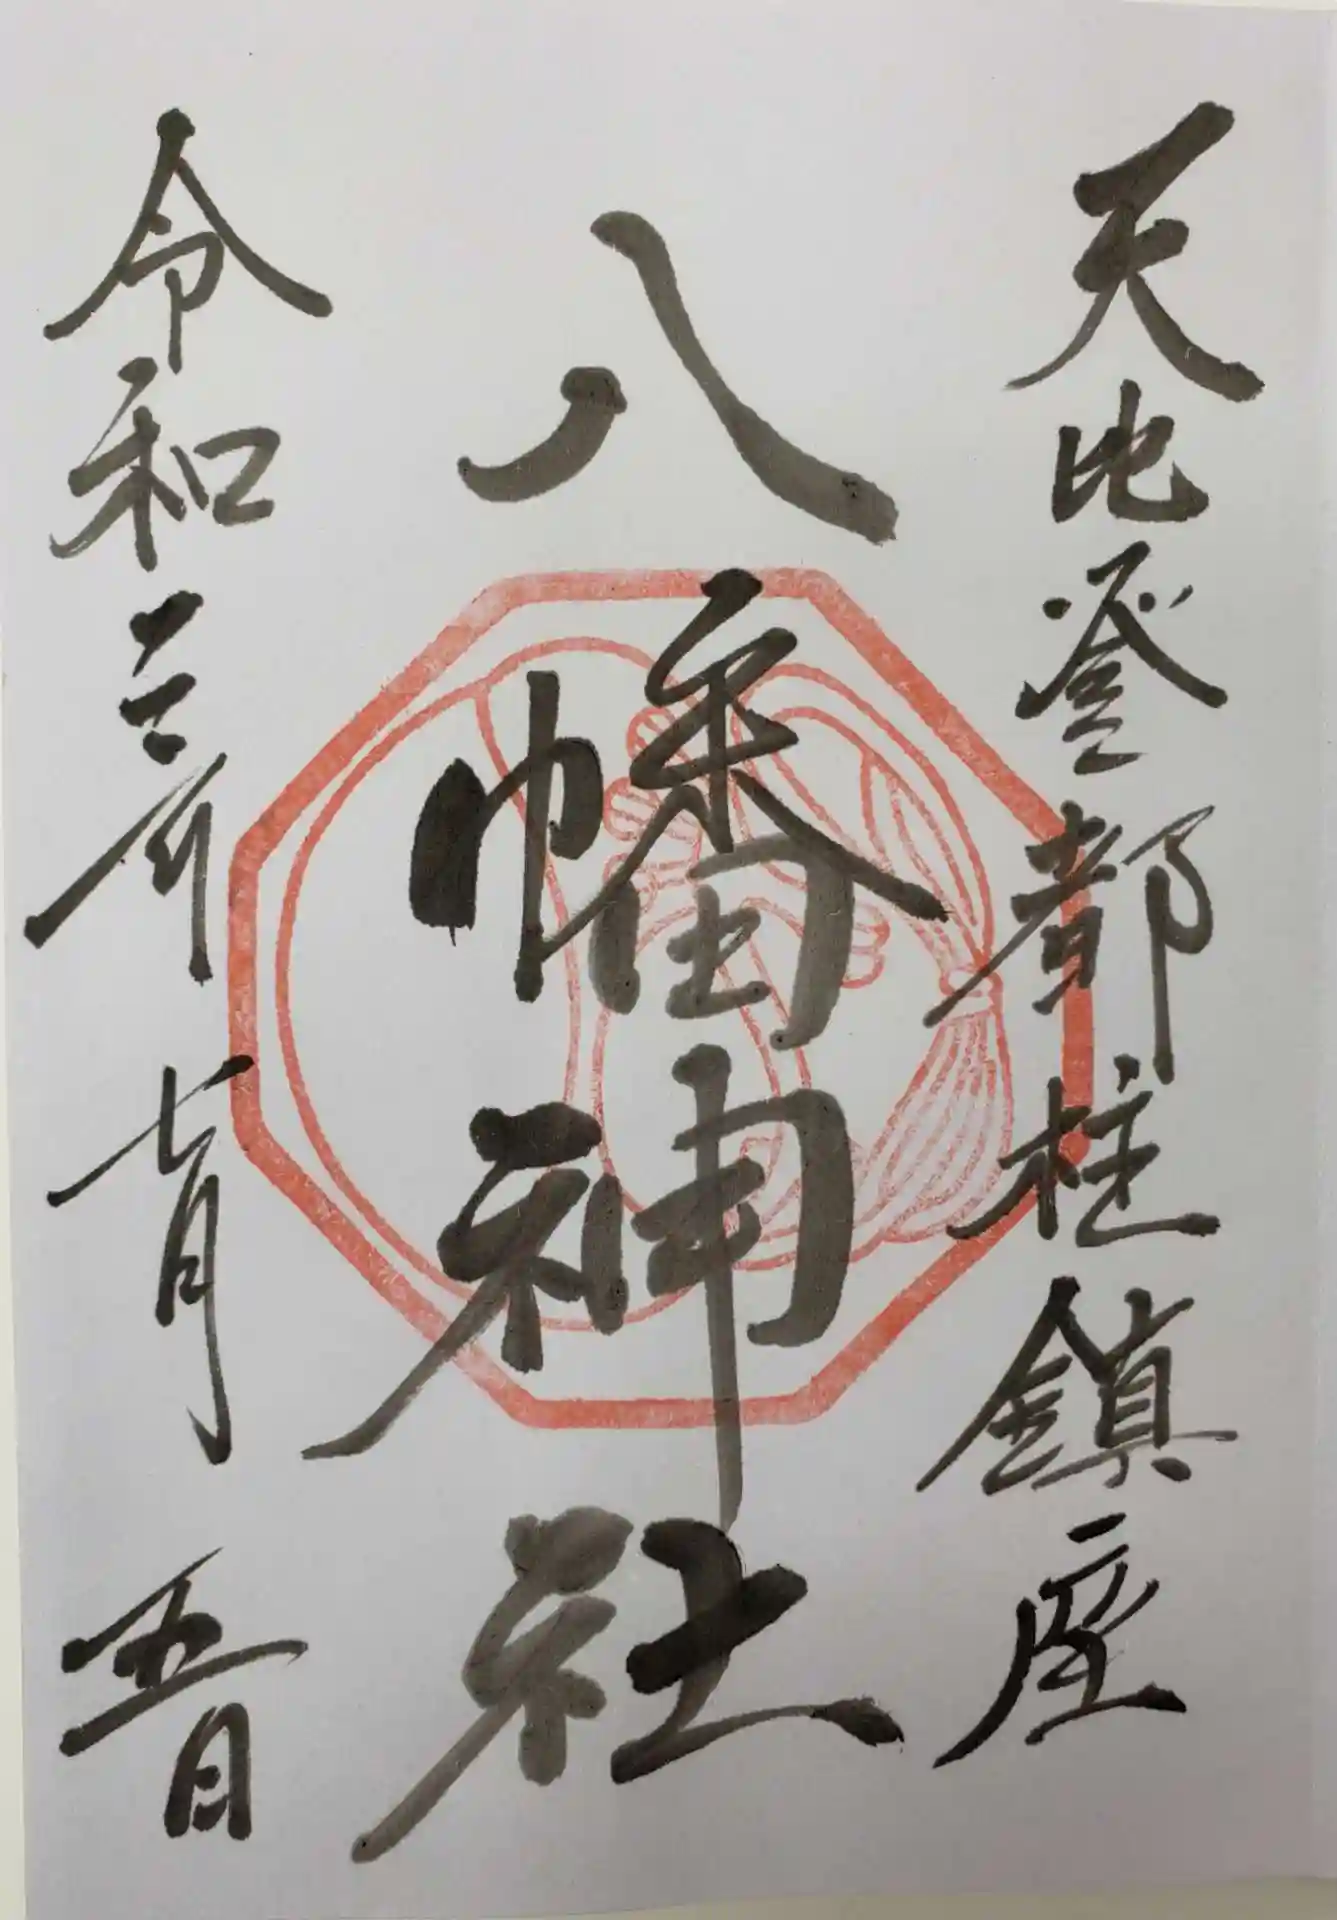 天比登都柱鎮座
八幡神社
令和三年七月五日